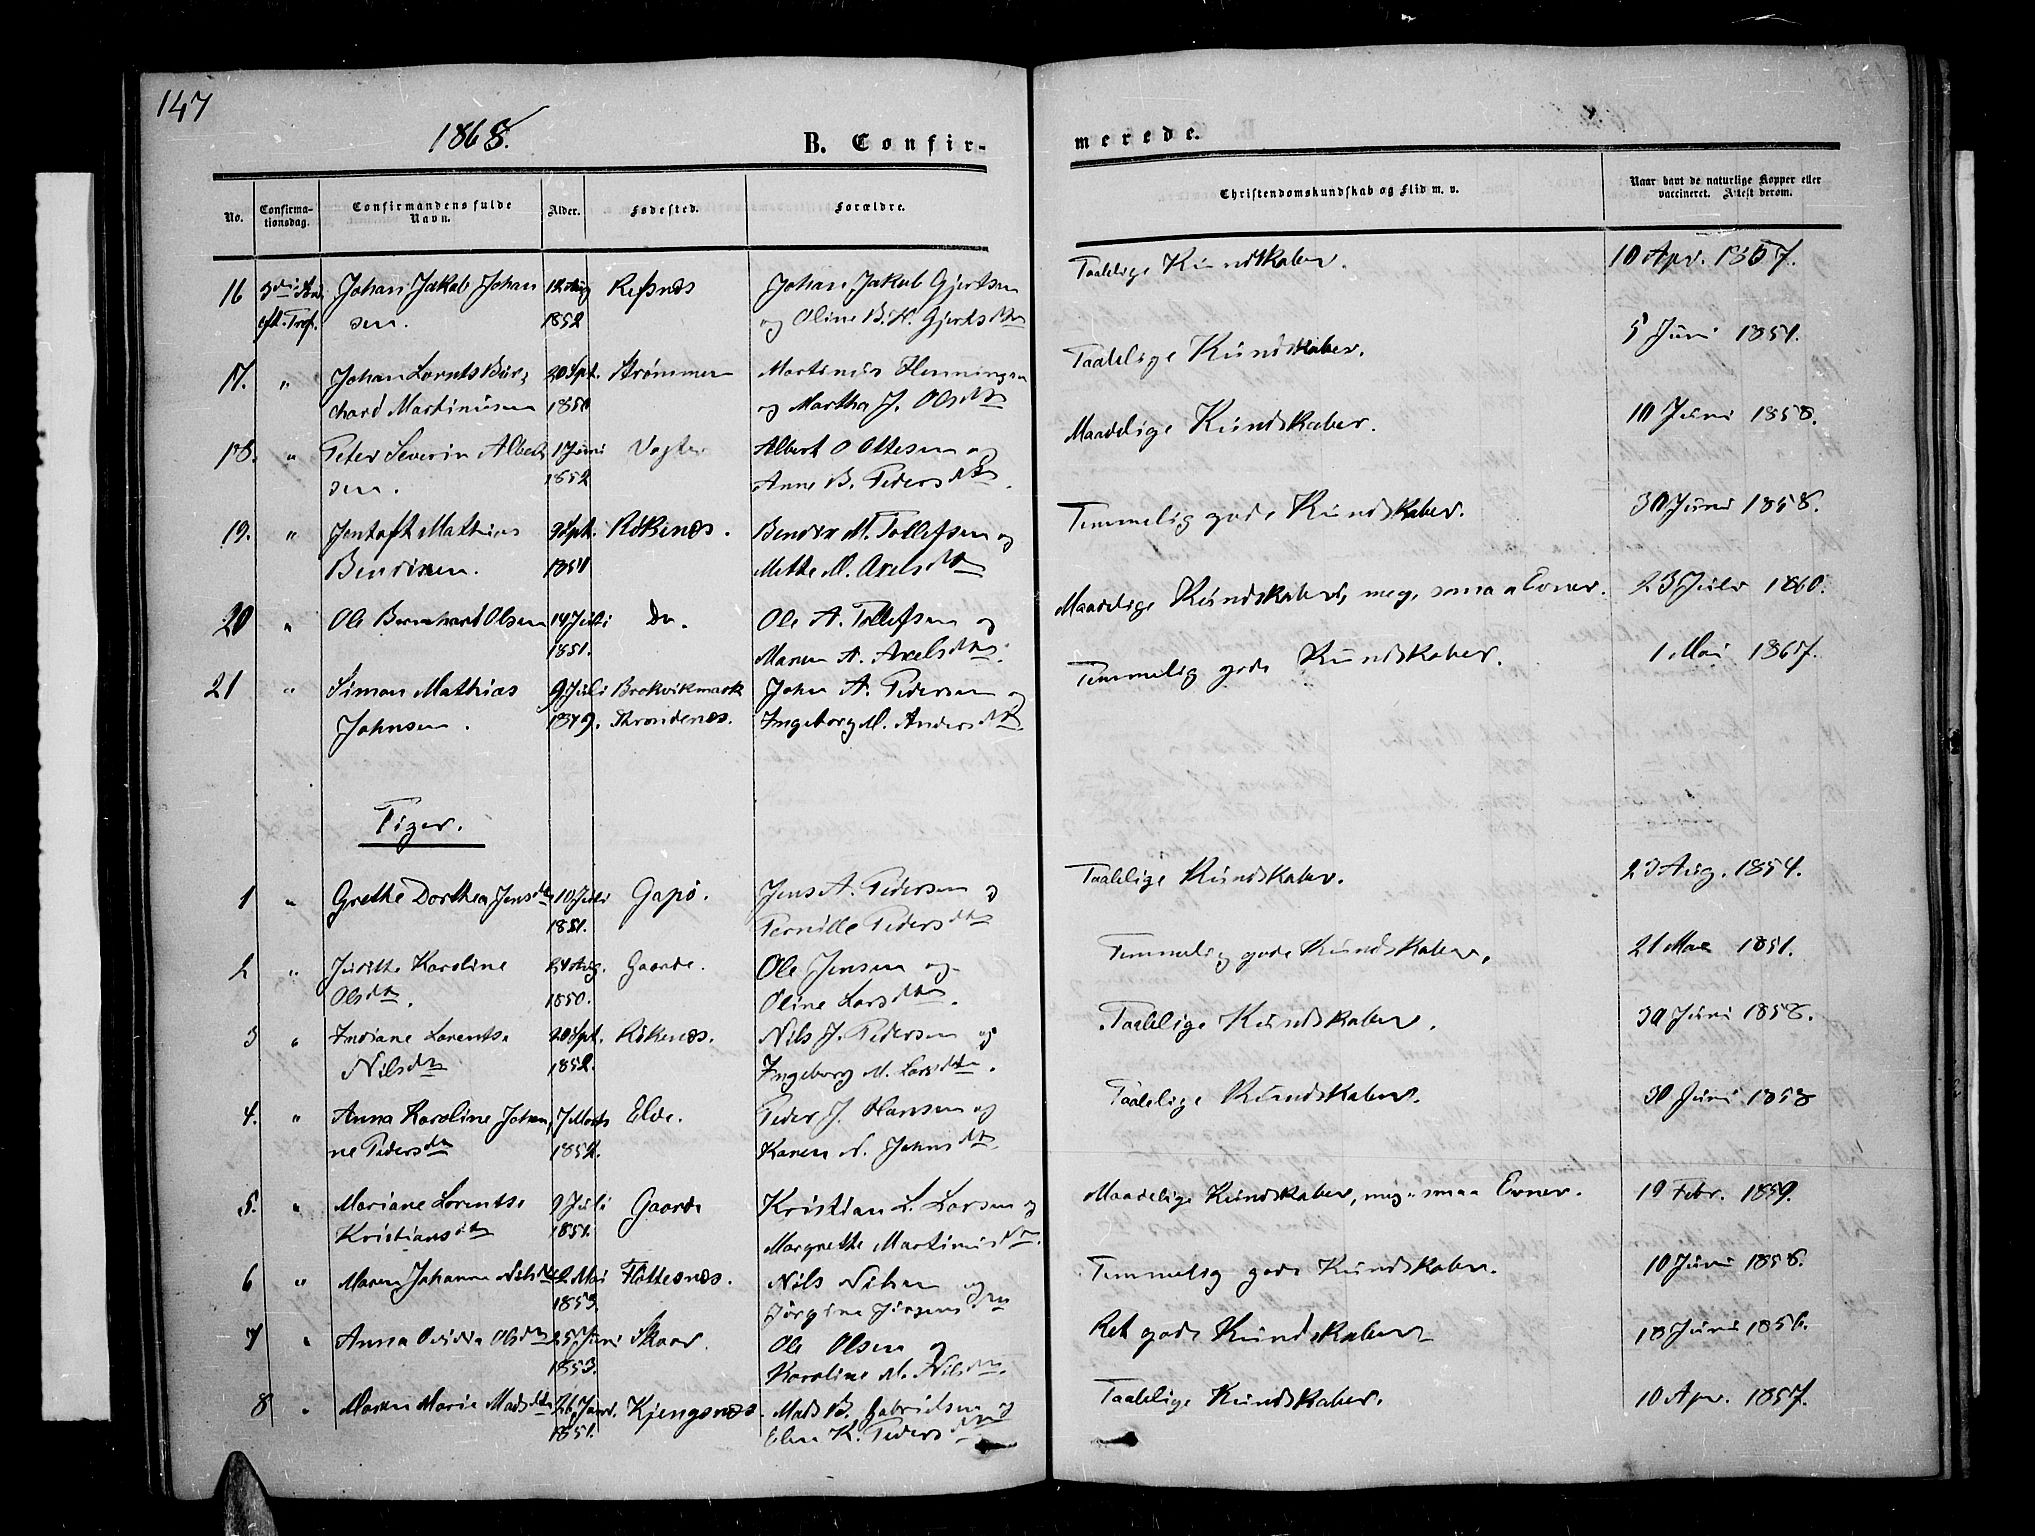 147
1868.
B. Confir-
merede.
No.
Confirma-
tionsdag.
Confirmandens fulde
Navn.
Alder.
Fødested.
Forældre.
Christendomskundskab og Flid m. v.
Naar havt de naturlige Kopper eller
vaccineret. Attest derom.
16 3die Sønd. Johan Jakob Johan 12 Aug Refsnæs Johan Jakob Gjertsen Taalelige Kundskaber. 10 Apr. 1857.
eft. Tref. sen. 1852 og Oline B. H. Gjertsdtr
17. " Johan Lornts Bur, 20 Spt. Strømmen Martinus Henningsen Taalelige Kundskaber. 5 Juni 1851.
chard Martinusen 1850 og Martha J. Olsdtr
18. " Peter Severin Alberts 17 Juni Vogter Albert O Ottesen og Maadelige Kundskaber. 10 Juni 1858.
sen. 1852 Anne B. Pedersdtr.
19. " Jentoft Mathias 9 Spt. Rökenæs. Bendix M. Tollefsen og Temmelig gode Kundskaber. 30 Juni 1858.
Bendixen. 1851 Mette M. Axelsdtr
20 " Ole Bernhard Olsen 14 Juli Do. Ole A. Tollefsen og Maadelige Kundskaber, meg. smaa Evner. 23 Juli 1860.
1851. Maren A. Axelsdtr.
21 " Simon Mathias 9 Juli Brokvikmark John A. Pedersen og Temmelig gode Kundskaber. 1 Mai 1867.
Johnsen. 1849. Throndenæs. Ingeborg M. Andersdtr
Piger.
1 " Grethe Dorthea Jensdtr 10 Juli Gapö. Jens A. Pedersen og Taalelige Kundskaber. 23 Aug. 1854.
1851. Pernille Pedersdtr
2 " Judithe Karoline 24 Aug. Gaarde. Ole Jensen og Temmelig gode Kundskaber. 21 Mai 1851.
Olsdtr. 1850. Oline Larsdtr.
3 " Indiane Lorentse 20 Spt. Rökenæs. Nils J. Pedersen og Taalelige Kundskaber. 30 Juni 1858.
Nilsdtr 1852. Ingeborg M. Larsdtr.
4. " Anna Karoline Johan, 7 Marts Elde. Peder J. Hansen og Taalelige Kundskaber. 30 Juni 1858
ne Pedersdtr 1852. Karen N. Johnsdtr.
5. " Mariane Lorentse 9 Juli Gaarde Kristian L. Larsen og Maadelige Kundskaber, meg. smaa Evner. 19 Febr. 1859.
Kristiansdtr 1851. Margrethe Martinusdtr.
6 " Maren Johanne Nilsdtr 2 Mai Flottesnæs. Nils Nilsen og Temmelig gode Kundskaber. 10 Juni 1858.
1853. Jörgine Jörgensdtr
7 " Anna Ovidia Olsdtr 25 Juni Skaar. Ole Olsen og Ret gode Kundskaber 18 Juni 1856.
1853. Karoline M. Nilsdtr.
8 " Maren Marie Madsdtr 26 Janr. Kjengsnæs. Mads B. Gabrielsen og Taalelige Kundskaber. 10 Apr. 1857.
1851. Elen K. Pedersdtr